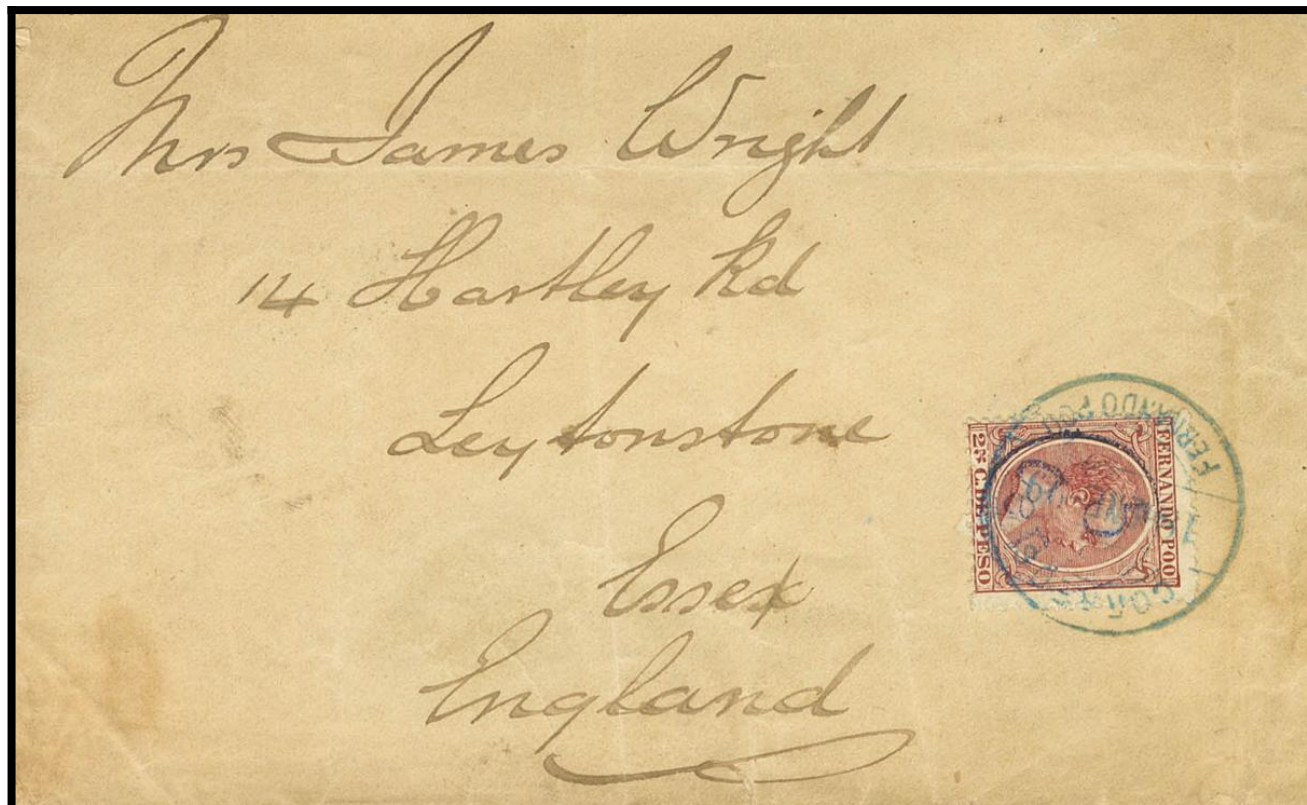 Mrs James Wright
14 Hartley Rd
Leytonstone
Essex
England
FERNANDO POO
FERNANDO POO
C. DE PESO